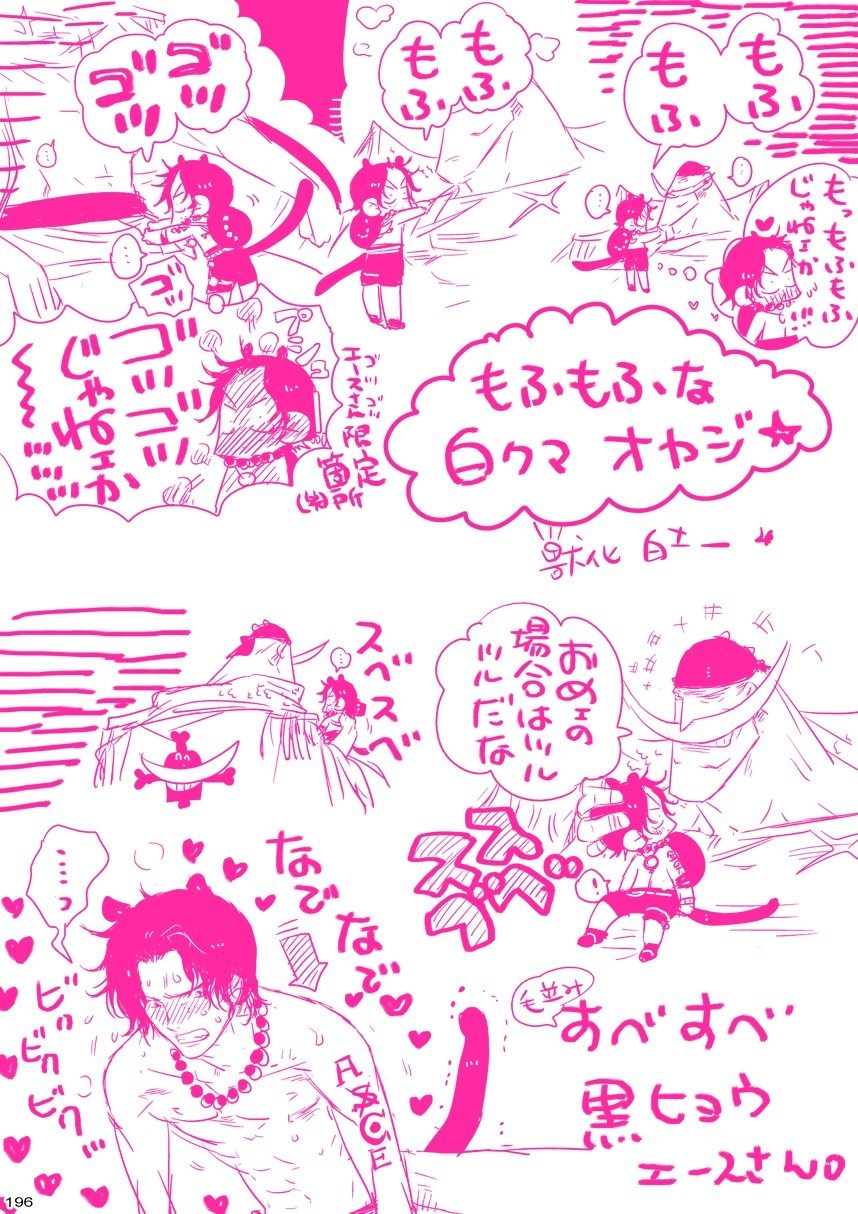 もふ
もふ
もっもふもふ
じゃねェか
!!!
もふ
もふ
ゴツ
ゴツ
ゴツ
プンプン
ゴツゴツ
じゃねェか
ゴツゴツ
エースさん限定
箇所
(笑)
もふもふな
白クマ オヤジ☆
獣化 白ヒー
おめェの
場合はツル
ツルだな
スベスベ
スベスベ
なでなで
……っ
ビクビクビクッ
ASCE
毛並み
すべすべ
黒ヒョウ
エースさん。
196